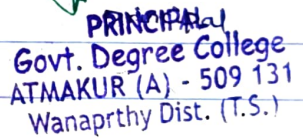 PRINCIPAL
Govt. Degree College
ATMAKUR (A) - 509 131
Wanaprthy Dist. (T.S.)